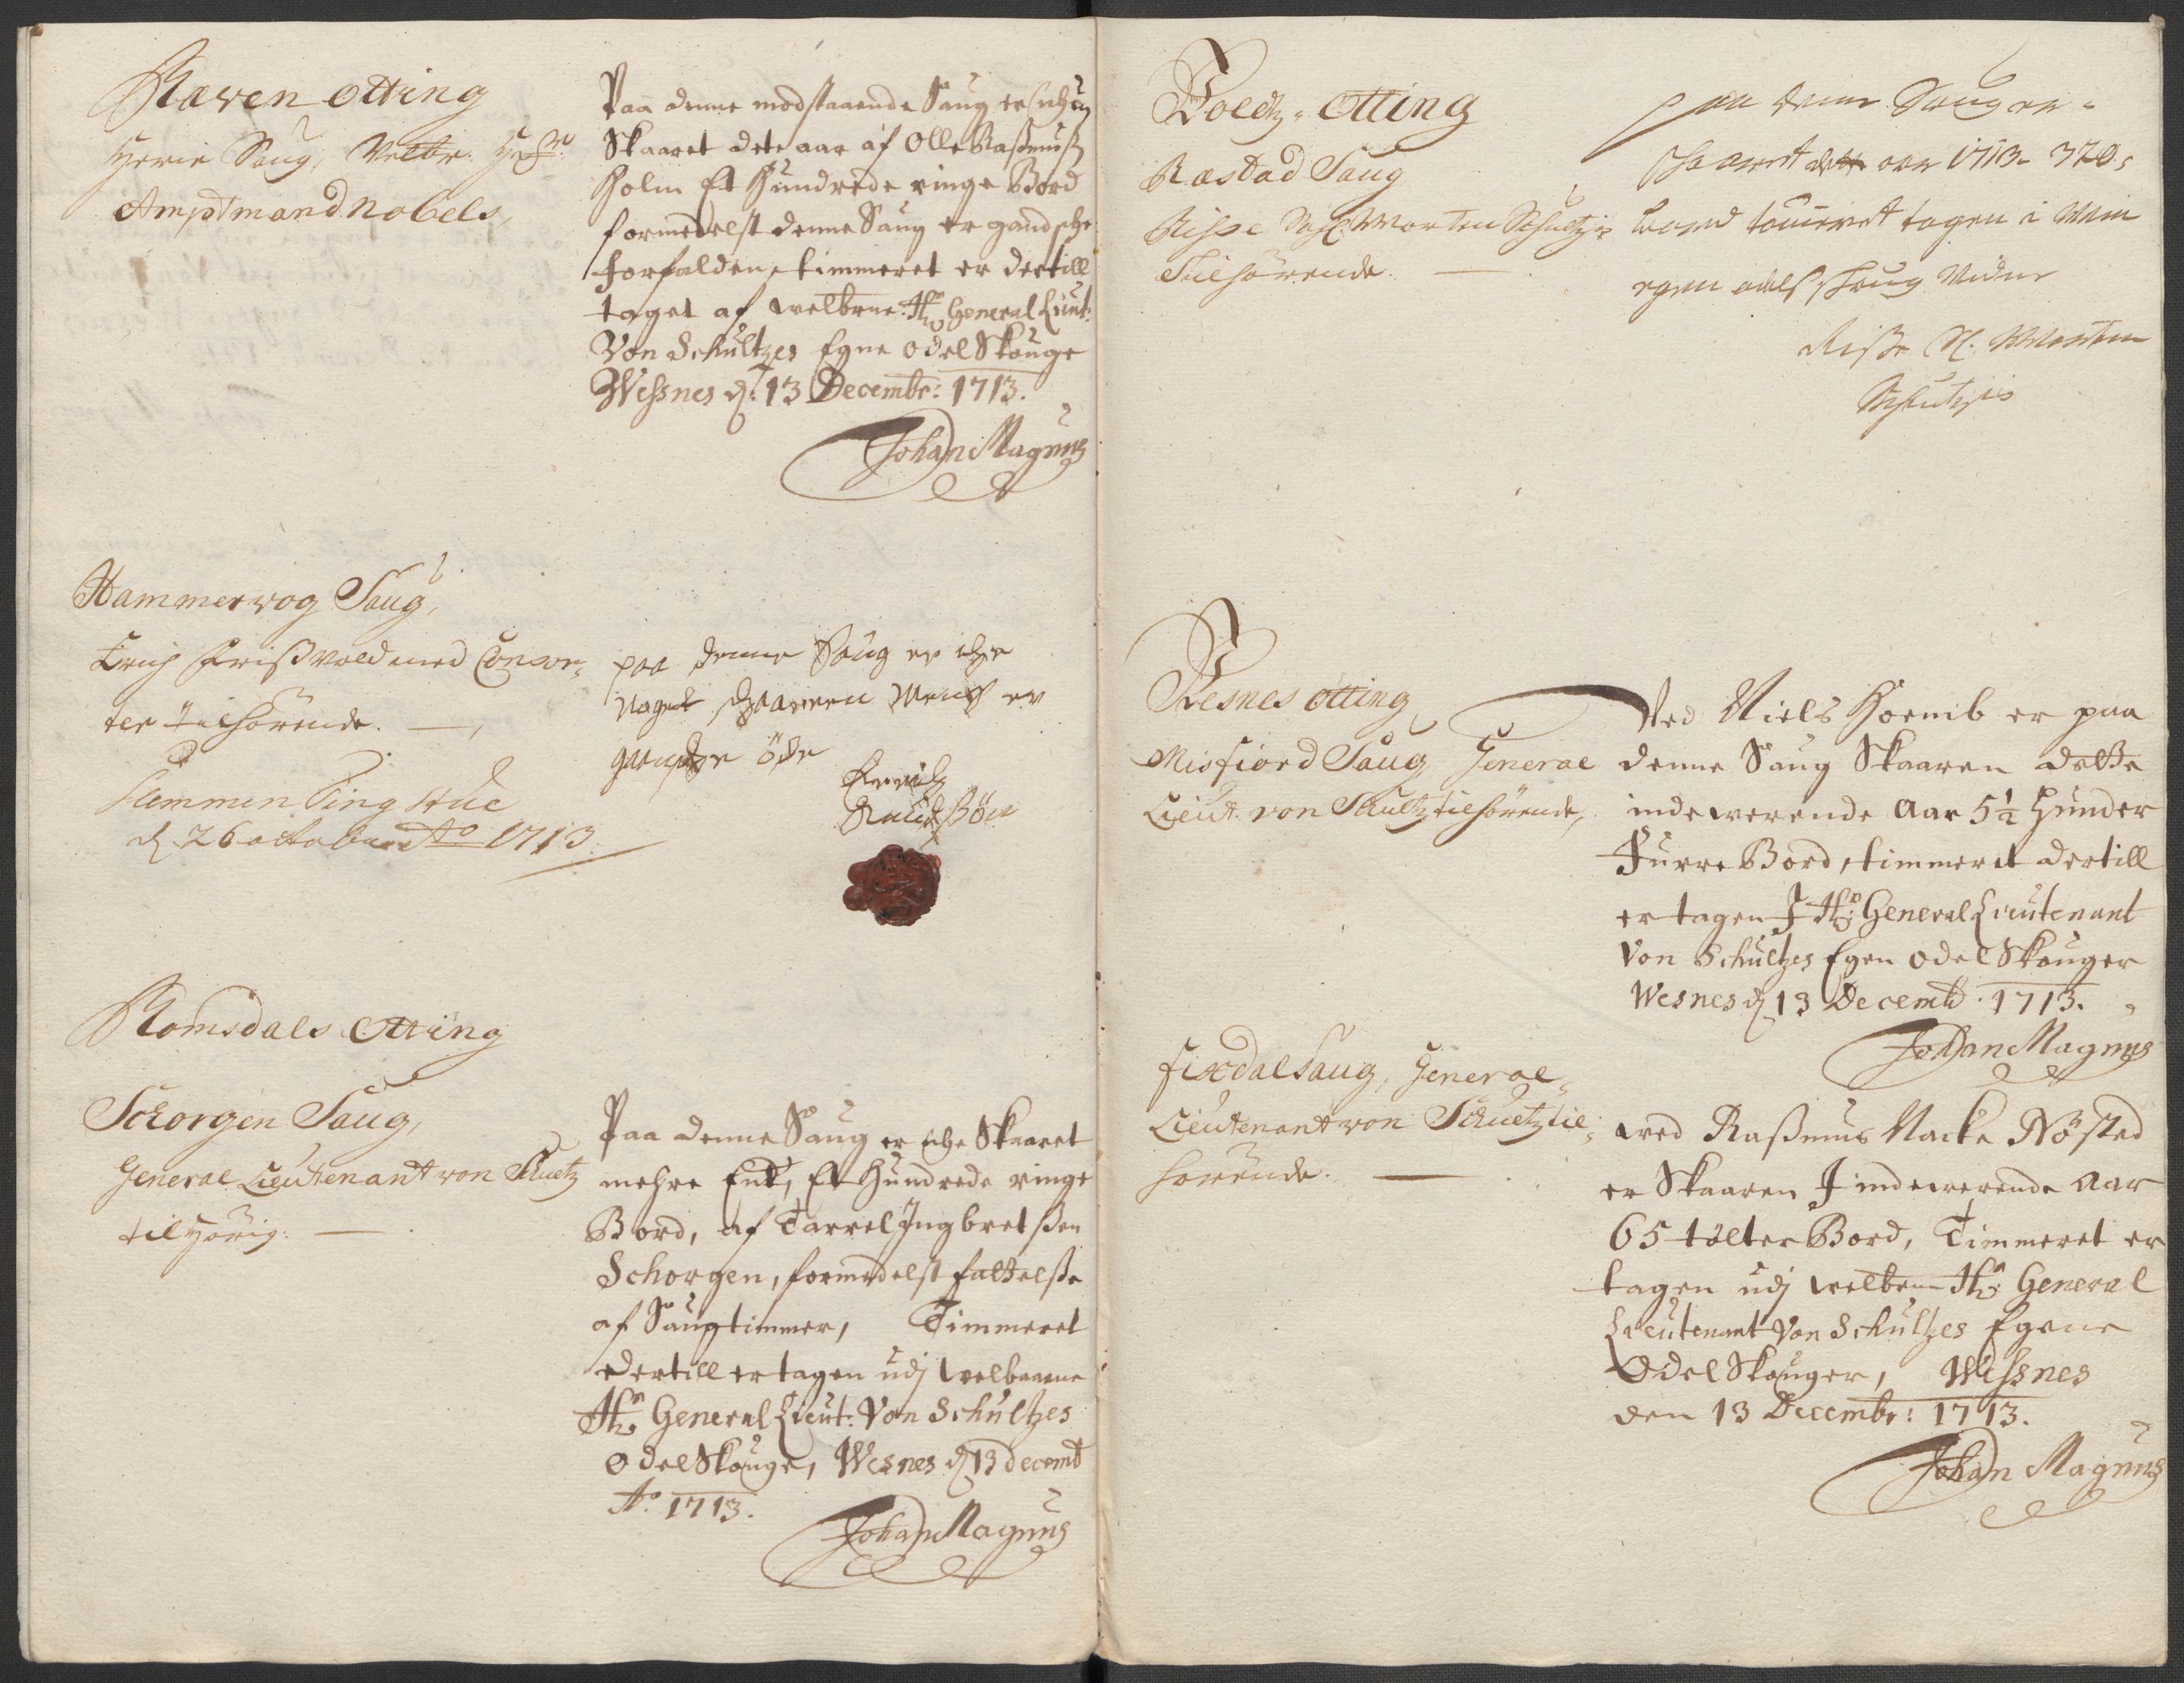 Ræven otting
Herie Saug, Velbr. Hr.
Amptmand Nobels,
Paa denne modstaaende Saug er iche
Skaaret dete aar af Olle Raßmuß
Holm Et Hundrede ringe Bord
formedelst denne Saug er gandsche
forfalden, timmeret er dertill
taget af welbrne: Hr General Lieut:
Von Schultzes Egne odel Skouge
Weßnes d: 13 Decembr: 1713.
Johan Magnus
Hammervog Saug,
Erich Frißvold med Consor,
ter tilhörende.
Paa denne Saug er iche
noget schaaren Mens er
gandsche öde
Lemmen Ting Stue
d. 26 octobr Ao 1713
Romsdals Otting
Schorgen Saug,
General Lieutenant von Schultz
tilhörig.
Paa denne Saug er iche Skaaret
mehre End, Et Hundrede ringe
Bord, af Tarrel Jngbretßen
Schorgen, formedelst
af Saugtimmer, Timmeret
dertill er tagen udj velbaarne
Hr General Lieut: Von Schultzes
odel Skouge, Wesnes d 13 decemb
Ao. 1713.
Johan Magnus
Boeltz-Otting
Ræstad Saug
Rispe Sahl. Morten Schultzis
Tilhörende.
paa denne Saug er
schaaret dette aar 1713- 370
bord tömret tagen i Min
egen odels schoug Vidner
Riße Sl. Morten
Schultzis
Vesnes otting
Misfiord Saug General
Lieut. von Schultz tilhörende,
Ved Niels Hoemb er paa
denne Saug Skaaren dette
indeverende Aar 5 1/2 Hunder
Furre Bord, timmeret dertill
er tagen J Hr: General Lieutenant
Von Schultzes Egen odel Skouger
Wesnes d 13 Decemb. 1713.
Johan Magnus
Fixdal Saug, General-
Lieutenant von Schultz til-
hörende.
ved Raßmus Nacke Nösted
er Skaaren J indeverende Aar
65 tölter Bord, Timmeret er
tagen udj velbrn Hr: General
Lieutenant Von Schultzes Egene
Odel Skouger, Weßnes
den 13 Decembr: 1713.
Johan Magnus